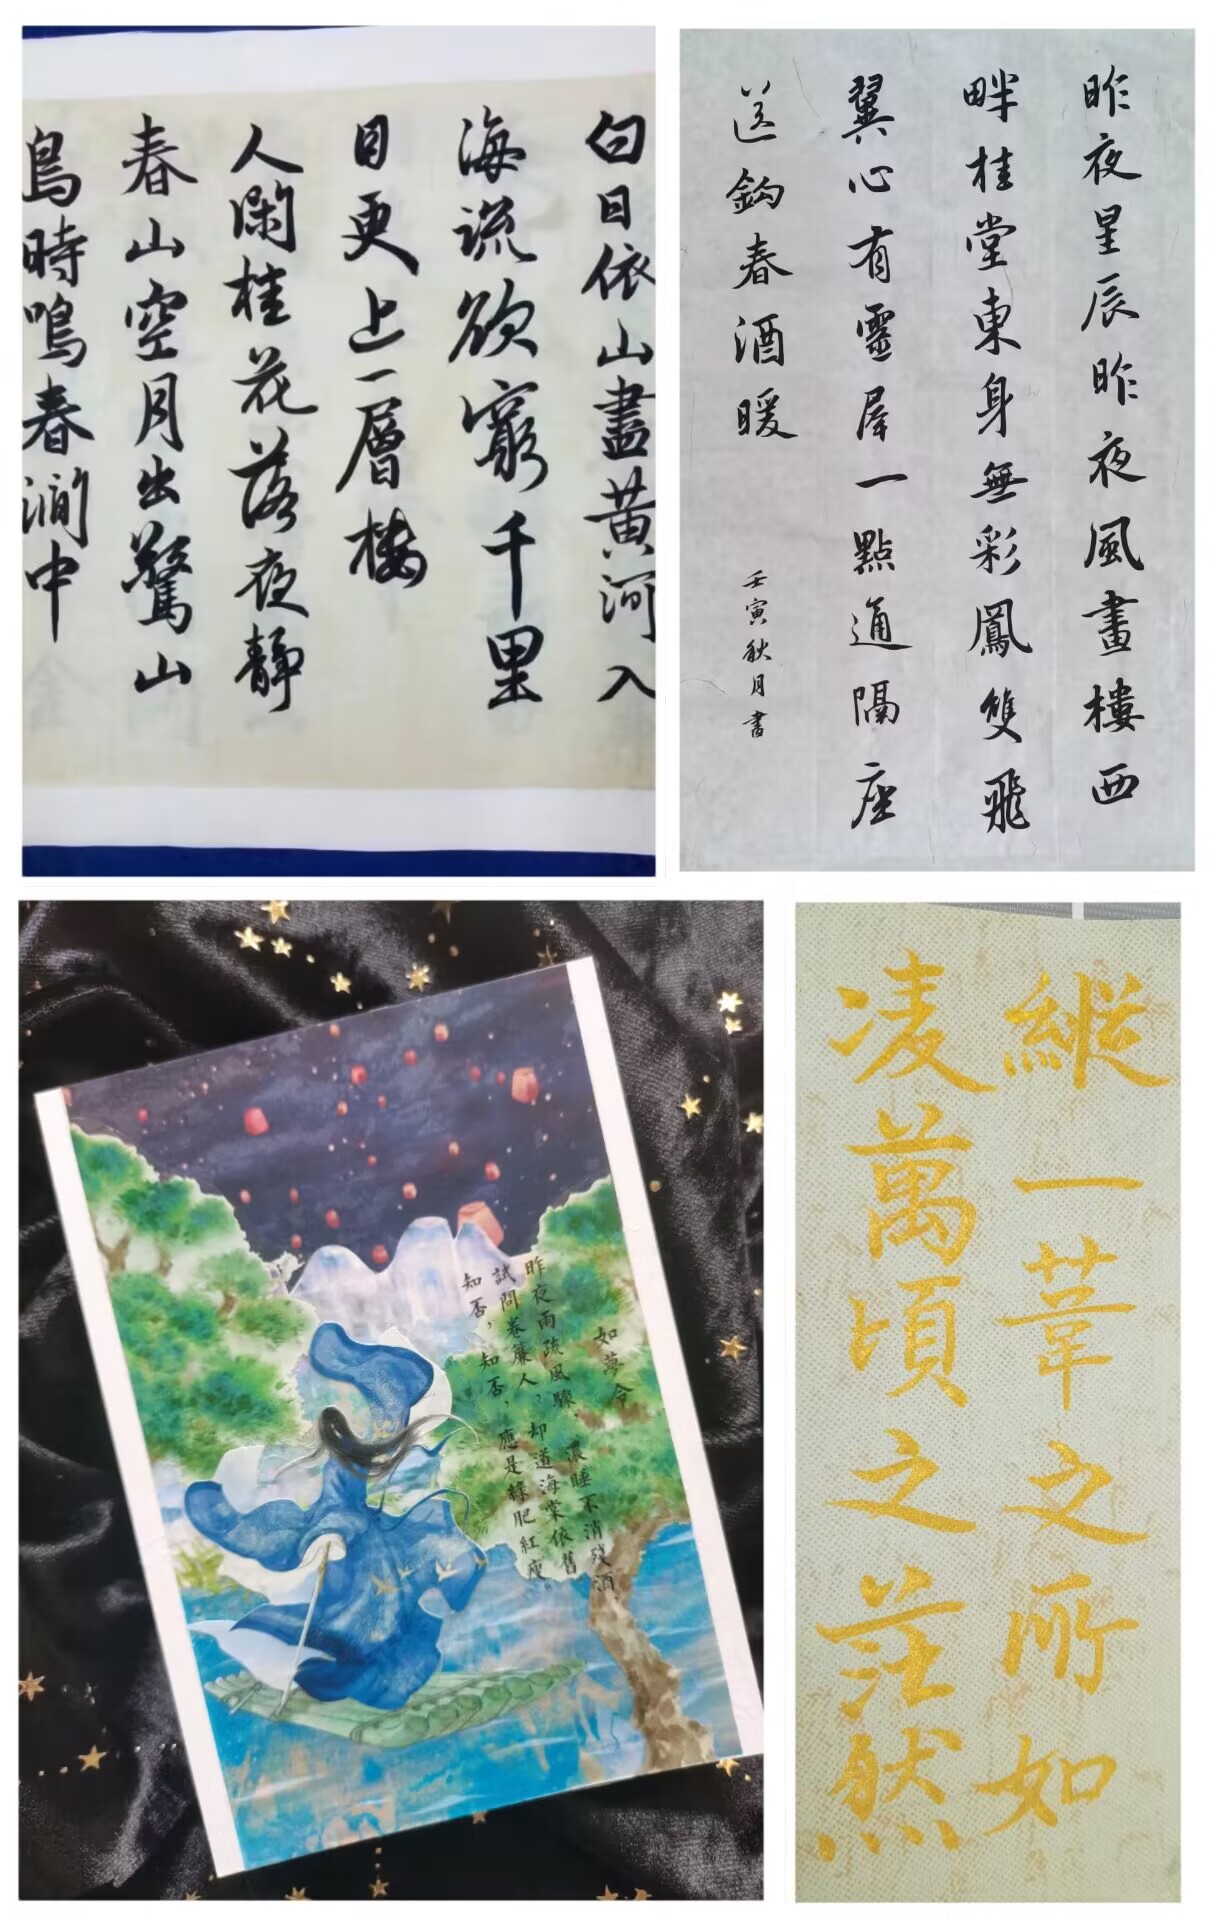 白日依山盡黃河入
海流欲窮千里
目更上一層樓
人閑桂花落夜靜
春山空月出驚山
鳥時鳴春澗中
昨夜星辰昨夜風畫樓西
畔桂堂東身無彩鳳雙飛
翼心有靈犀一點通隔座
送鈎春酒暖
壬寅秋月書
如夢令
昨夜雨疏風驟，濃睡不消殘酒
試問卷簾人，却道海棠依舊
知否，知否，應是綠肥紅瘦。
縱一葦之所如
凌萬頃之茫然